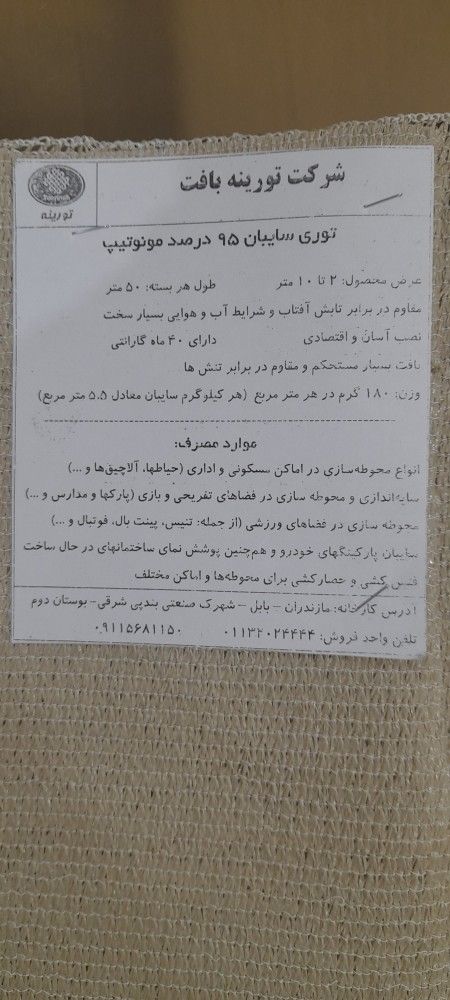 شرکت تورینه بافت
تورینه
توری سایبان ۹۵ درصد مونوتیپ
عرض محصول: ۲ تا ۱۰ متر طول هر بسته: ۵۰ متر
مقاوم در برابر تابش آفتاب و شرایط آب و هوایی بسیار سخت
نصب آسان و اقتصادی دارای ۴۰ ماه گارانتی
بافت بسیار مستحکم و مقاوم در برابر تنش ها
وزن: ۱۸۰ گرم در هر متر مربع (هر کیلوگرم سایبان معادل ۵.۵ متر مربع)
موارد مصرف:
انواع محوطه‌سازی در اماکن مسکونی و اداری (حیاطها، آلاچیق‌ها و ...)
سایه‌اندازی و محوطه سازی در فضاهای تفریحی و بازی (پارکها و مدارس و ...)
محوطه سازی در فضاهای ورزشی (از جمله: تنیس، پینت بال، فوتبال و ...)
سایبان پارکینگهای خودرو و هم‌چنین پوشش نمای ساختمانهای در حال ساخت
فنس کشی و حصارکشی برای محوطه‌ها و اماکن مختلف
آدرس کارخانه: مازندران - بابل - شهرک صنعتی بندپی شرقی- بوستان دوم
تلفن واحد فروش: ۰۱۱۳۲۰۲۴۴۴۴ ۰۹۱۱۵۶۸۱۱۵۰